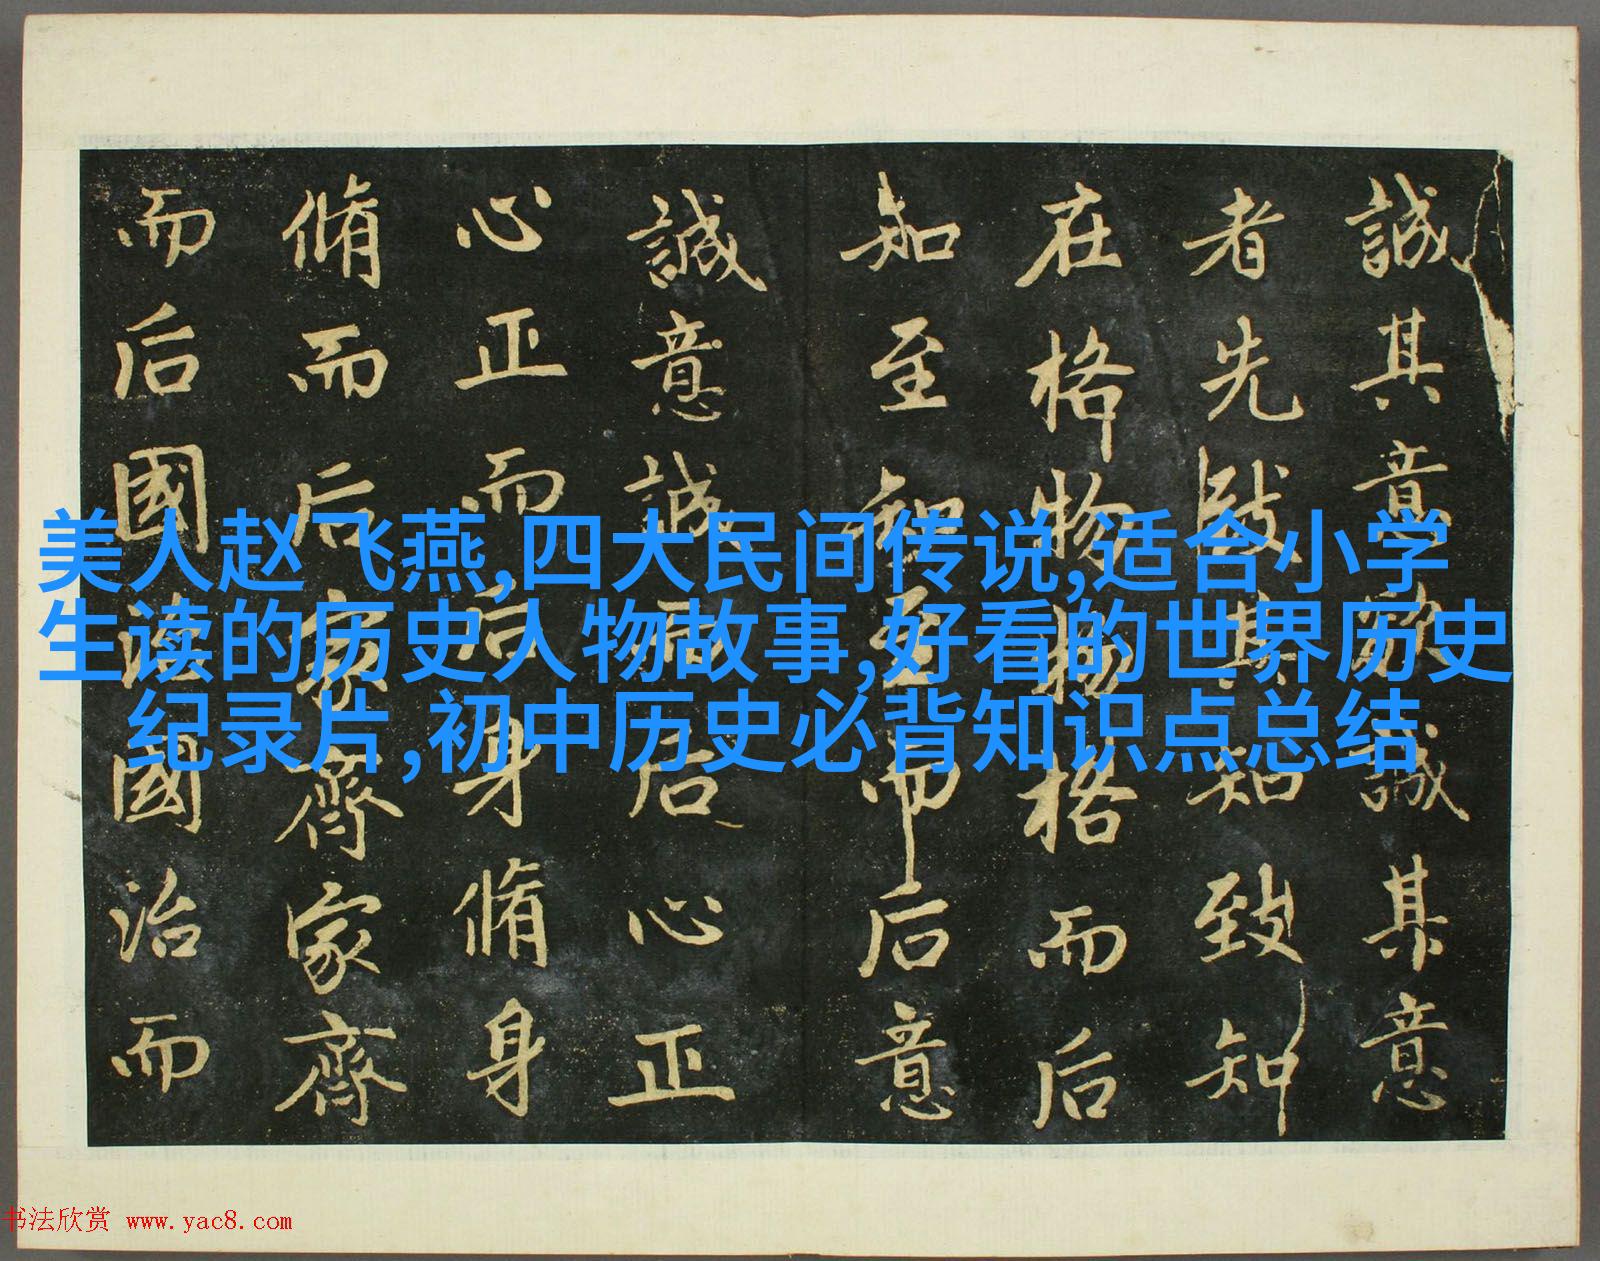 誠其意欲誠其意
者先致其知致知
在格物物格而后
知至知至而后意
誠意誠而后心正
心正而后身脩身
脩而后家齊家齊
而后國治國治而
美人赵飞燕,四大民间传说,适合小学
生读的历史人物故事,好看的世界历史
纪录片,初中历史必背知识点总结
书法欣赏 www.yac8.com